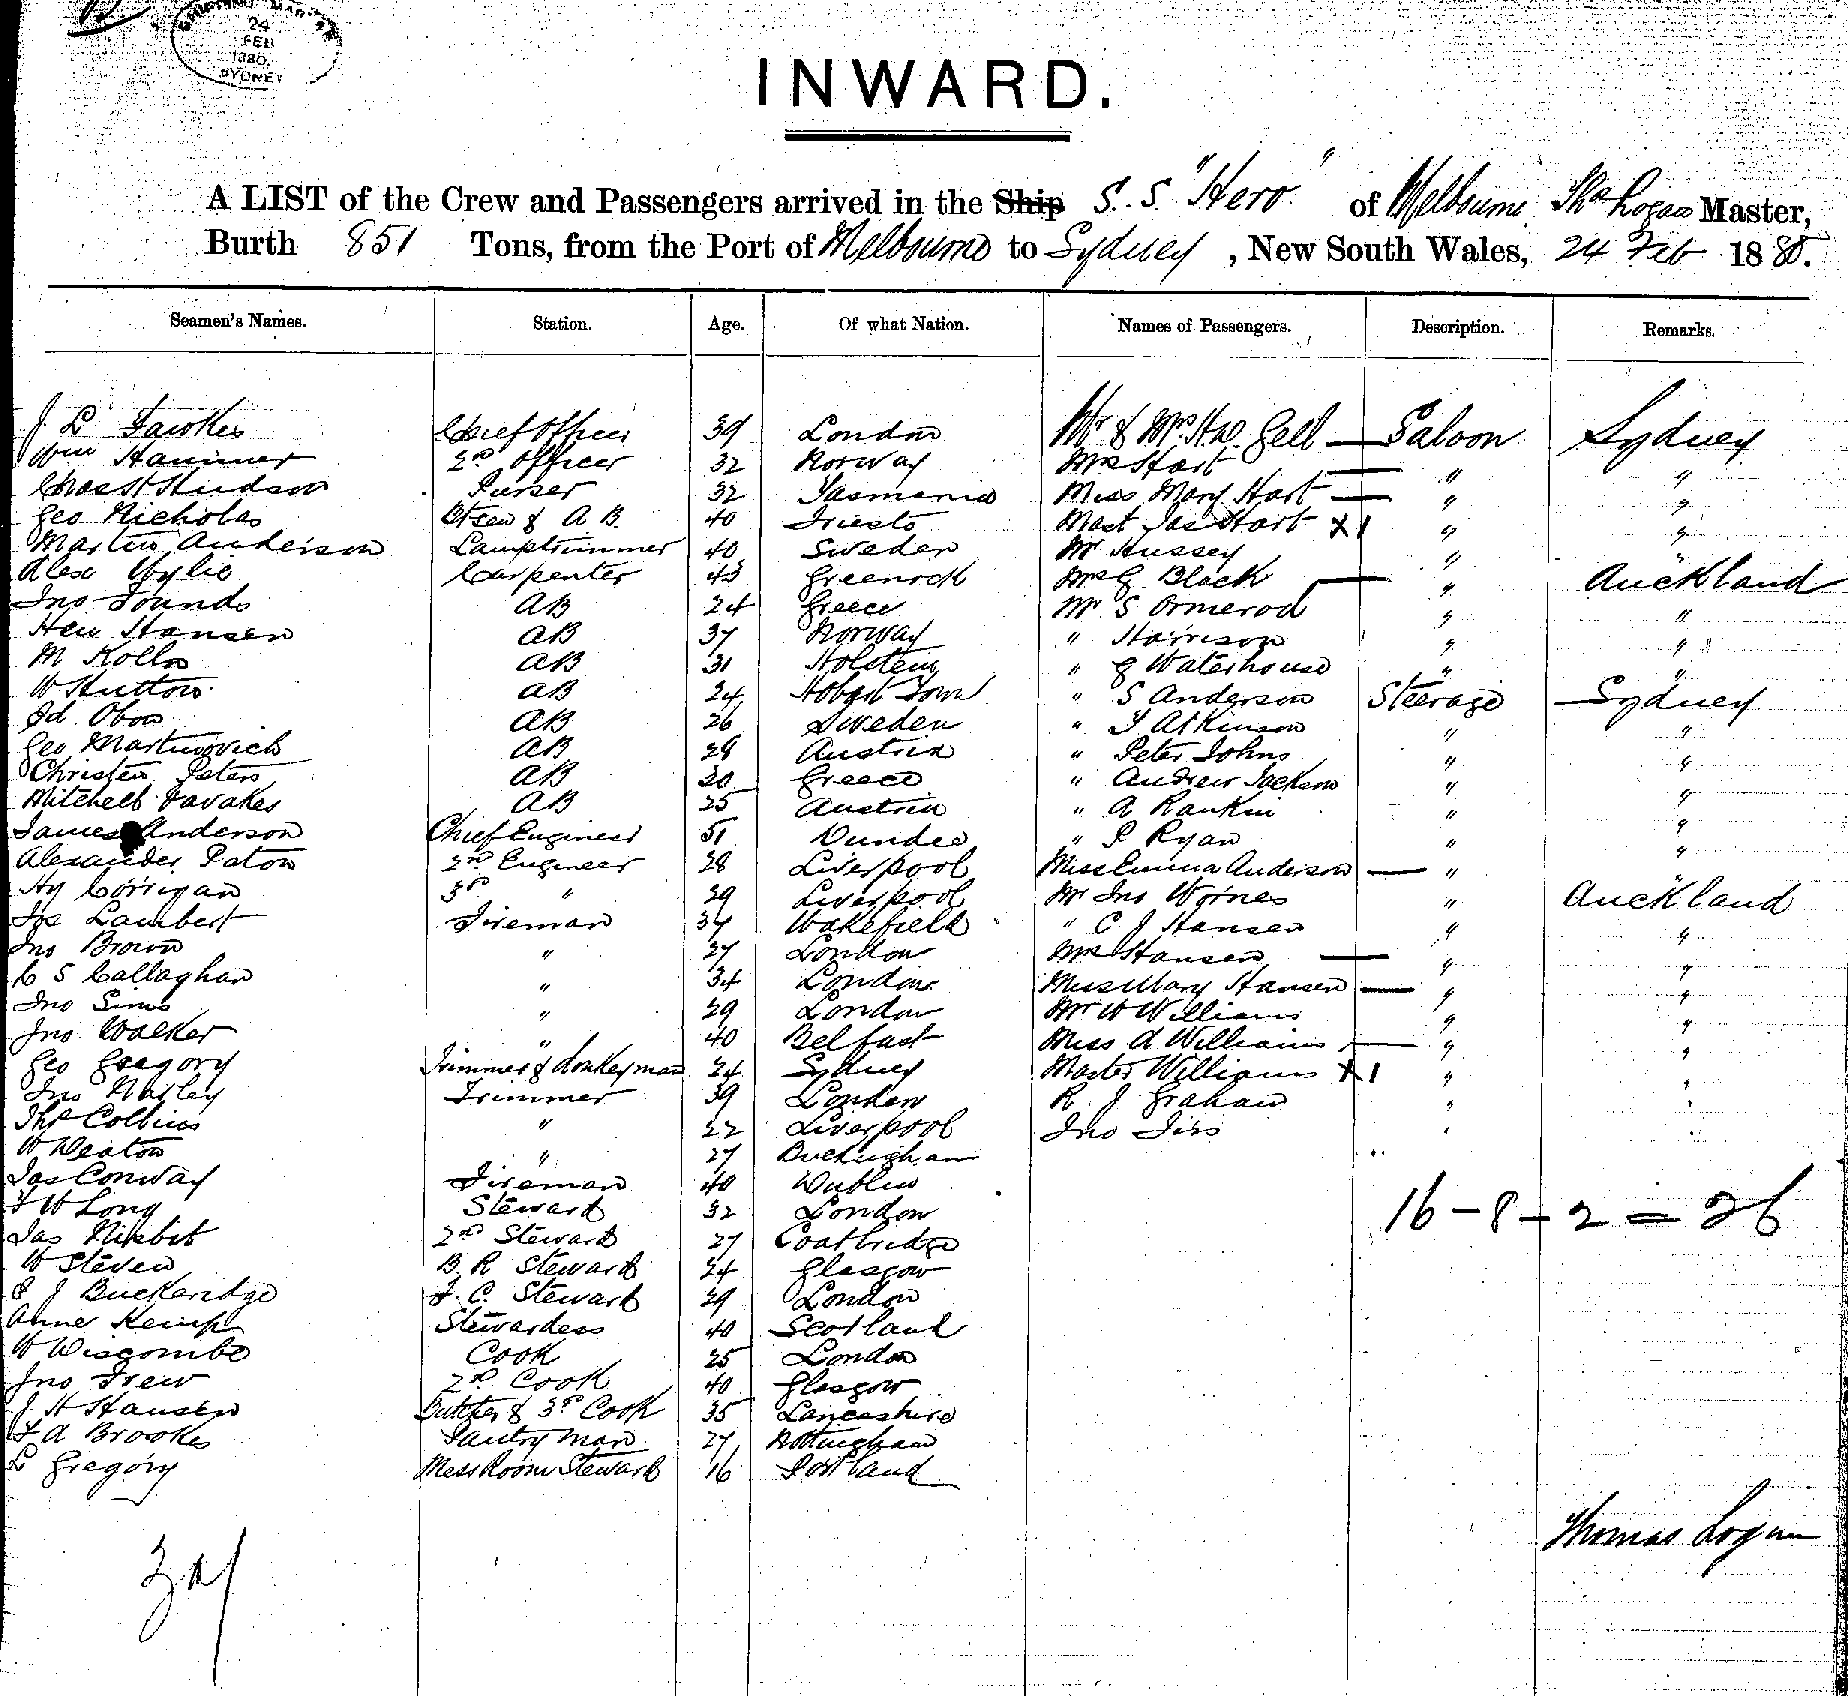 24
FEB
1880
SYDNEY
INWARD.
A LIST of the Crew and Passengers arrived in the Ship S. S. "Hero" of Melbourne Thos Logan Master,
Burth 851 Tons, from the Port of Melbourne to Sydney, New South Wales, 24 Feb 1880.
Seamen's Names. Station. Age. Of what Nation. Names of Passengers. Description. Remarks.
J L Fawkes Chief Officer 39 London Mr & Mrs Gell — Saloon Sydney
Wm Hammer 2nd Officer 32 Norway Mrs Hart — " "
Chas H Hudson Purser 32 Tasmania Miss Mary Hart — " "
Geo Nicholas & A B. 40 Trieste Mast Jas Hart X1 " "
Martin Anderson Lamptrimmer 40 Sweden Mr Hussey " "
Alex Wylie Carpenter 43 Greenock Mrs G Black — " Auckland
Jno Founds AB 24 Greece Mr S Ormerod " "
Hen Hansen AB 37 Norway " Harrison " "
M Kolln AB 31 Holstein " G Waterhouse " "
W Hutton AB 24 Hobart Town " S Anderson Steerage Sydney
Obon AB 26 Sweden " T Atkinson " "
Geo Martinovich AB 28 Austria " Peter Johns " "
Christen Peters AB 20 Greece " Andrew Jackson " "
Mitchell AB 25 Austria " A Rankin " "
James Anderson Chief Engineer 51 Dundee " P Ryan " "
Alexander Paton 2nd Engineer 28 Liverpool Miss Emma Anderson — " "
Hy Corrigan 3rd " 29 Liverpool Mr Jno Wornes " Auckland
Jos Lambert Fireman 34 Wakefield " C J Hansen " "
Jno Brown " 37 London Mrs Hansen — " "
C S Callaghan " 34 London Miss Mary Hansen — " "
Jno Sims " 29 London Mr W Williams " "
Jno Walker " 40 Belfast Miss A Williams — " "
Geo Gregory Trimmer & donkeyman 24 Sydney Master Williams X1 " "
Jno Trimmer 39 London R J Graham " "
Thos Collins " 22 Liverpool Jno "
W Weaton " 27 Buckingham
Jas Conway Fireman 40 Dublin
F W Long Steward 32 London 16 - 8 - 2 = 26
Jas Nisbit 2nd Steward 27 Coatbridge
W Steven B. R Steward 24 Glasgow
J Buckeridge F. C. Steward 29 London
Anne Kemp Stewardess 40 Scotland
W Wiscombe Cook 25 London
Jno Frew 2nd Cook 40 Glasgow
J H Hansen Butcher & 3rd Cook 35 Lancashire
F A Brookes Pantryman 27 Nottingham
L Gregory Mess Room Steward 16 Portland
Thomas Logan